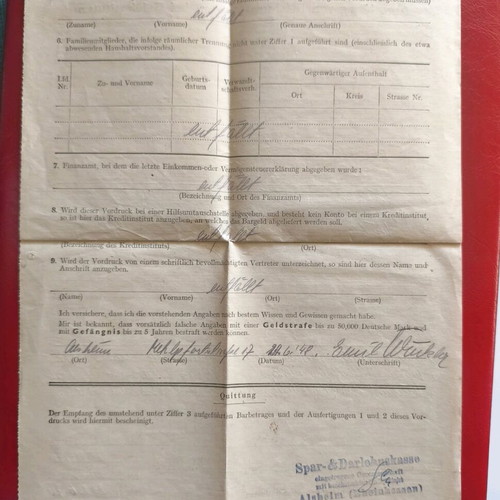 entfällt
(Zuname) (Vorname) (Genaue Anschrift)
6. Familienmitglieder, die infolge räumlicher Trennung nicht unter Ziffer 1 aufgeführt sind (einschließlich des etwa
abwesenden Haushaltsvorstandes).
Lfd. Nr. Zu- und Vorname Geburts-datum Verwandt-schaftsverh. Gegenwärtiger Aufenthalt
Ort Kreis Strasse Nr.
entfällt
7. Finanzamt, bei dem die letzte Einkommen- oder Vermögensteuererklärung abgegeben wurde:
entfällt
(Bezeichnung und Ort des Finanzamts)
8. Wird dieser Vordruck bei einer Hilfsumtauschstelle abgegeben, und besteht kein Konto bei einem Kreditinstitut,
so ist hier das Kreditinstitut anzugeben, an welches das Bargeld abgeliefert werden soll.
entfällt
(Bezeichnung des Kreditinstituts) (Ort)
9. Wird der Vordruck von einem schriftlich bevollmächtigten Vertreter unterzeichnet, so sind hier dessen Name und
Anschrift anzugeben.
entfällt
(Name) (Vorname) (Ort) (Strasse)
Ich versichere, dass ich die vorstehenden Angaben nach bestem Wissen und Gewissen gemacht habe.
Mir ist bekannt, dass vorsätzlich falsche Angaben mit einer Geldstrafe bis zu 50,000 Deutsche Mark und
mit Gefängnis bis zu 5 Jahren bestraft werden können.
Emil
(Ort) (Strasse) (Datum) (Unterschrift)
Quittung
Der Empfang des umstehend unter Ziffer 3 aufgeführten Barbetrages und der Ausfertigungen 1 und 2 dieses Vor-
drucks wird hiermit bescheinigt.
Spar- & Darlehnskasse
eingetragene Genossenschaft
Alsheim (Rheinhessen)